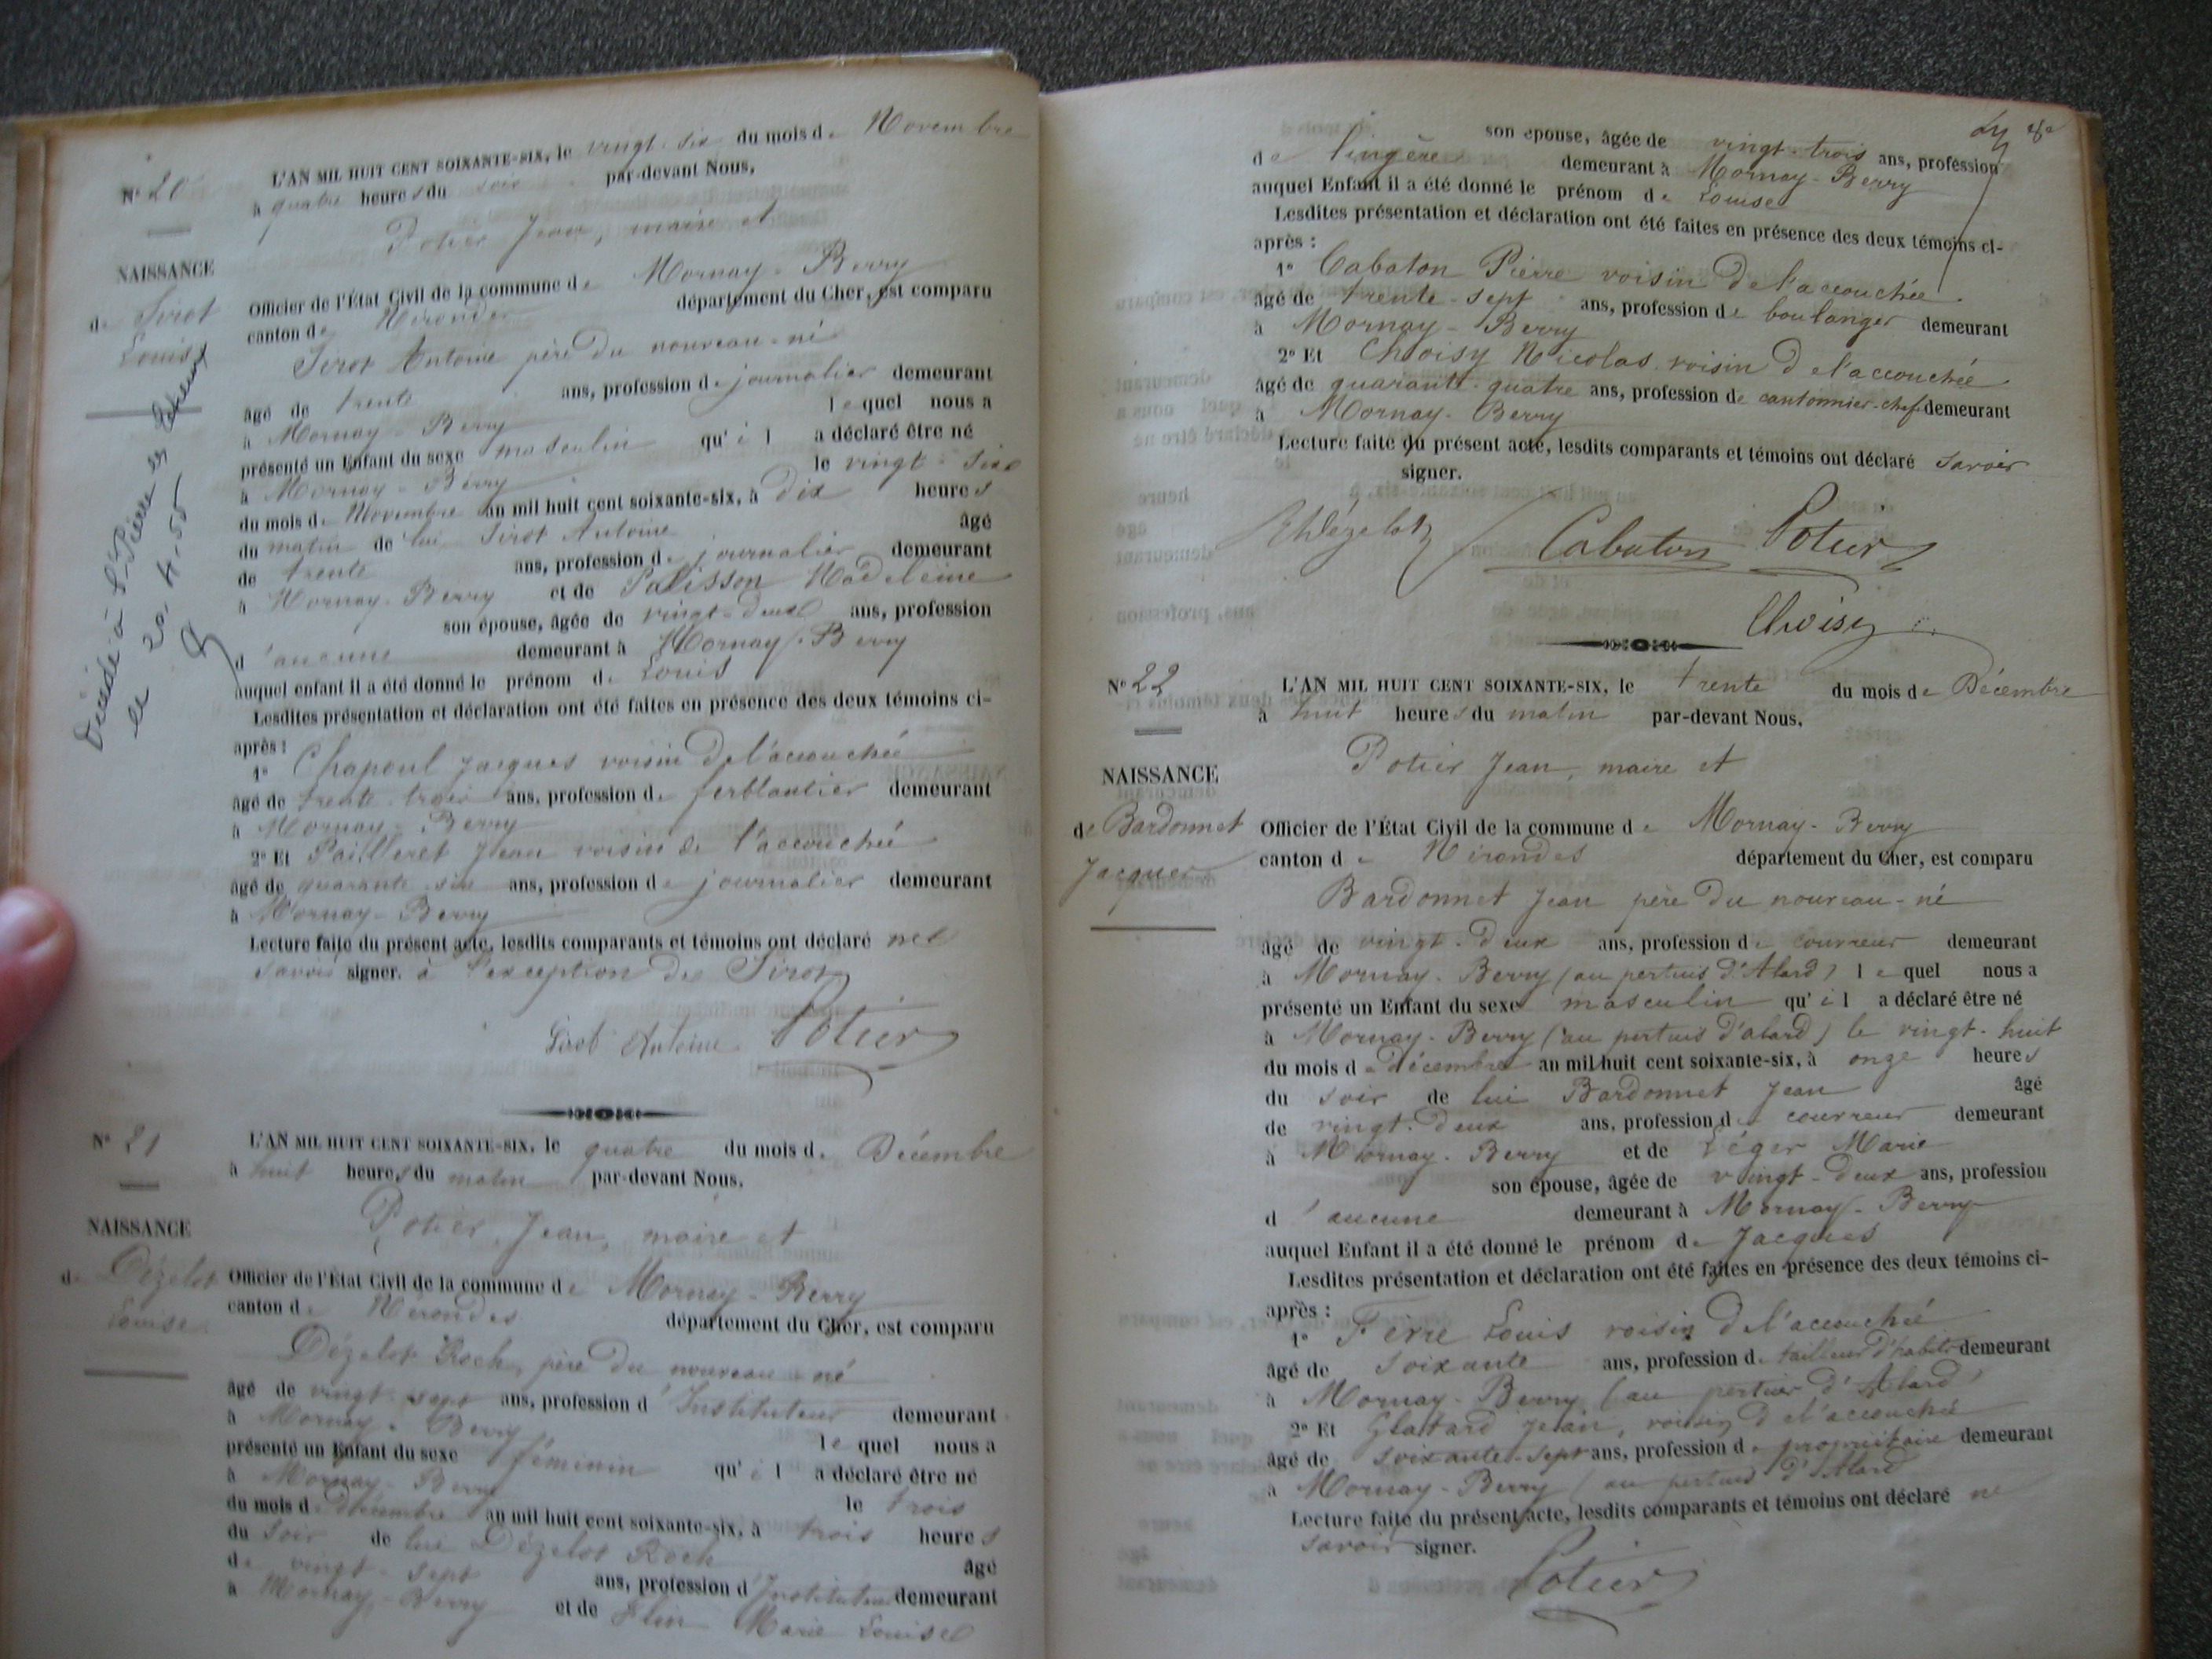 N° 20
NAISSANCE
de Sirot
Louis
Décédé à St Pierre les Etieux
le 20.4.55
L'AN MIL HUIT CENT SOIXANTE-SIX, le vingt-six du mois de Novembre
à quatre heures du soir par-devant Nous,
Potier Jean, maire et
Officier de l'État Civil de la commune de Mornay-Berry
canton de Nérondes département du Cher, est comparu
Sirot Antoine père du nouveau-né
âgé de trente ans, profession de journalier demeurant
à Mornay-Berry lequel nous a
présenté un Enfant du sexe masculin qu'il a déclaré être né
à Mornay-Berry le vingt-six
du mois de Novembre an mil huit cent soixante-six, à dix heures
du matin de lui Sirot Antoine âgé
de trente ans, profession de journalier demeurant
à Mornay-Berry et de Palisson Madeleine
son épouse, âgée de vingt-deux ans, profession
d'aucune demeurant à Mornay-Berry
auquel enfant il a été donné le prénom de Louis
Lesdites présentation et déclaration ont été faites en présence des deux témoins ci-
après :
1° Chapoul Jacques voisin de l'accouchée
âgé de trente-trois ans, profession de ferblantier demeurant
à Mornay-Berry
2° Et Pailleret Jean voisin de l'accouchée
âgé de quarante-six ans, profession de journalier demeurant
à Mornay-Berry
Lecture faite du présent acte, lesdits comparants et témoins ont déclaré ne
savoir signer. à l'exception de Sirot
Sirot Antoine Potier
N° 21
NAISSANCE
de Dézelot
Louise
L'AN MIL HUIT CENT SOIXANTE-SIX, le quatre du mois de Décembre
à huit heures du matin par-devant Nous,
Potier Jean, maire et
Officier de l'État Civil de la commune de Mornay-Berry
canton de Nérondes département du Cher, est comparu
Dézelot Roch, père du nouveau-né
âgé de vingt-sept ans, profession d'Instituteur demeurant
à Mornay-Berry lequel nous a
présenté un Enfant du sexe féminin qu'il a déclaré être né
à Mornay-Berry le trois
du mois de décembre an mil huit cent soixante-six, à trois heures
du soir de lui Dézelot Roch âgé
de vingt-sept ans, profession d'Instituteur demeurant
à Mornay-Berry et de Flin Marie Louise
son épouse, âgée de vingt-trois ans, profession
de lingère demeurant à Mornay-Berry
auquel Enfant il a été donné le prénom de Louise
Lesdites présentation et déclaration ont été faites en présence des deux témoins ci-
après :
1° Cabaton Pierre voisin de l'accouchée
âgé de trente-sept ans, profession de boulanger demeurant
à Mornay-Berry
2° Et Choisy Nicolas voisin de l'accouchée
âgé de quarante-quatre ans, profession de cantonnier-chef demeurant
à Mornay-Berry
Lecture faite du présent acte, lesdits comparants et témoins ont déclaré savoir
signer.
Dézelot Cabaton Potier
Choisy
N° 22
NAISSANCE
de Bardonnet
Jacques
L'AN MIL HUIT CENT SOIXANTE-SIX, le trente du mois de Décembre
à huit heures du matin par-devant Nous,
Potier Jean, maire et
Officier de l'État Civil de la commune de Mornay-Berry
canton de Nérondes département du Cher, est comparu
Bardonnet Jean père du nouveau-né
âgé de vingt-deux ans, profession de couvreur demeurant
à Mornay-Berry (au pertuis d'Alard) lequel nous a
présenté un Enfant du sexe masculin qu'il a déclaré être né
à Mornay-Berry (au pertuis d'alard) le vingt-huit
du mois de décembre an mil huit cent soixante-six, à onze heures
du soir de lui Bardonnet Jean âgé
de vingt-deux ans, profession de couvreur demeurant
à Mornay-Berry et de Léger Marie
son épouse, âgée de vingt-deux ans, profession
d'aucune demeurant à Mornay-Berry
auquel Enfant il a été donné le prénom de Jacques
Lesdites présentation et déclaration ont été faites en présence des deux témoins ci-
après :
1° Ferre Louis voisin de l'accouchée
âgé de soixante ans, profession de tailleur d'habits demeurant
à Mornay-Berry (au pertuis d'Alard)
2° Et Glatard Jean, voisin de l'accouchée
âgé de soixante-sept ans, profession de propriétaire demeurant
à Mornay-Berry (au pertuis d'Alard
Lecture faite du présent acte, lesdits comparants et témoins ont déclaré ne
savoir signer.
Potier